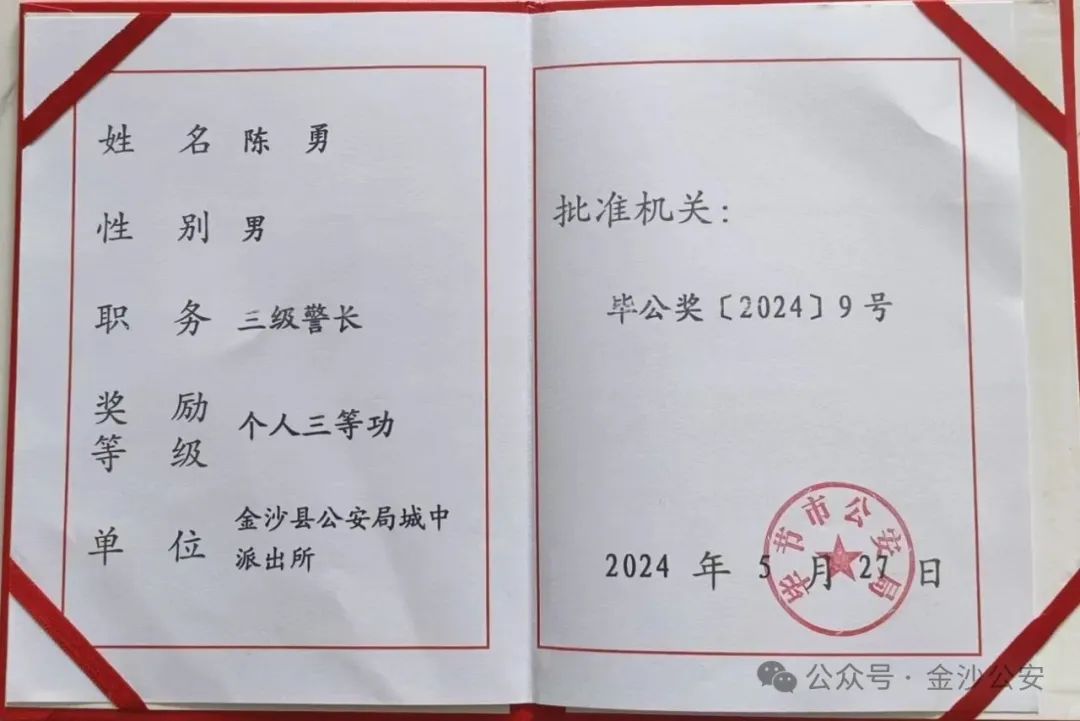 姓 名 陈 勇
性 别 男
职 务 三级警长
奖 励
等 级 个人三等功
单 位 金沙县公安局城中
派出所
批准机关：
毕公奖〔2024〕9号
2024 年 5 月 27 日
毕节市公安局
公众号·金沙公安